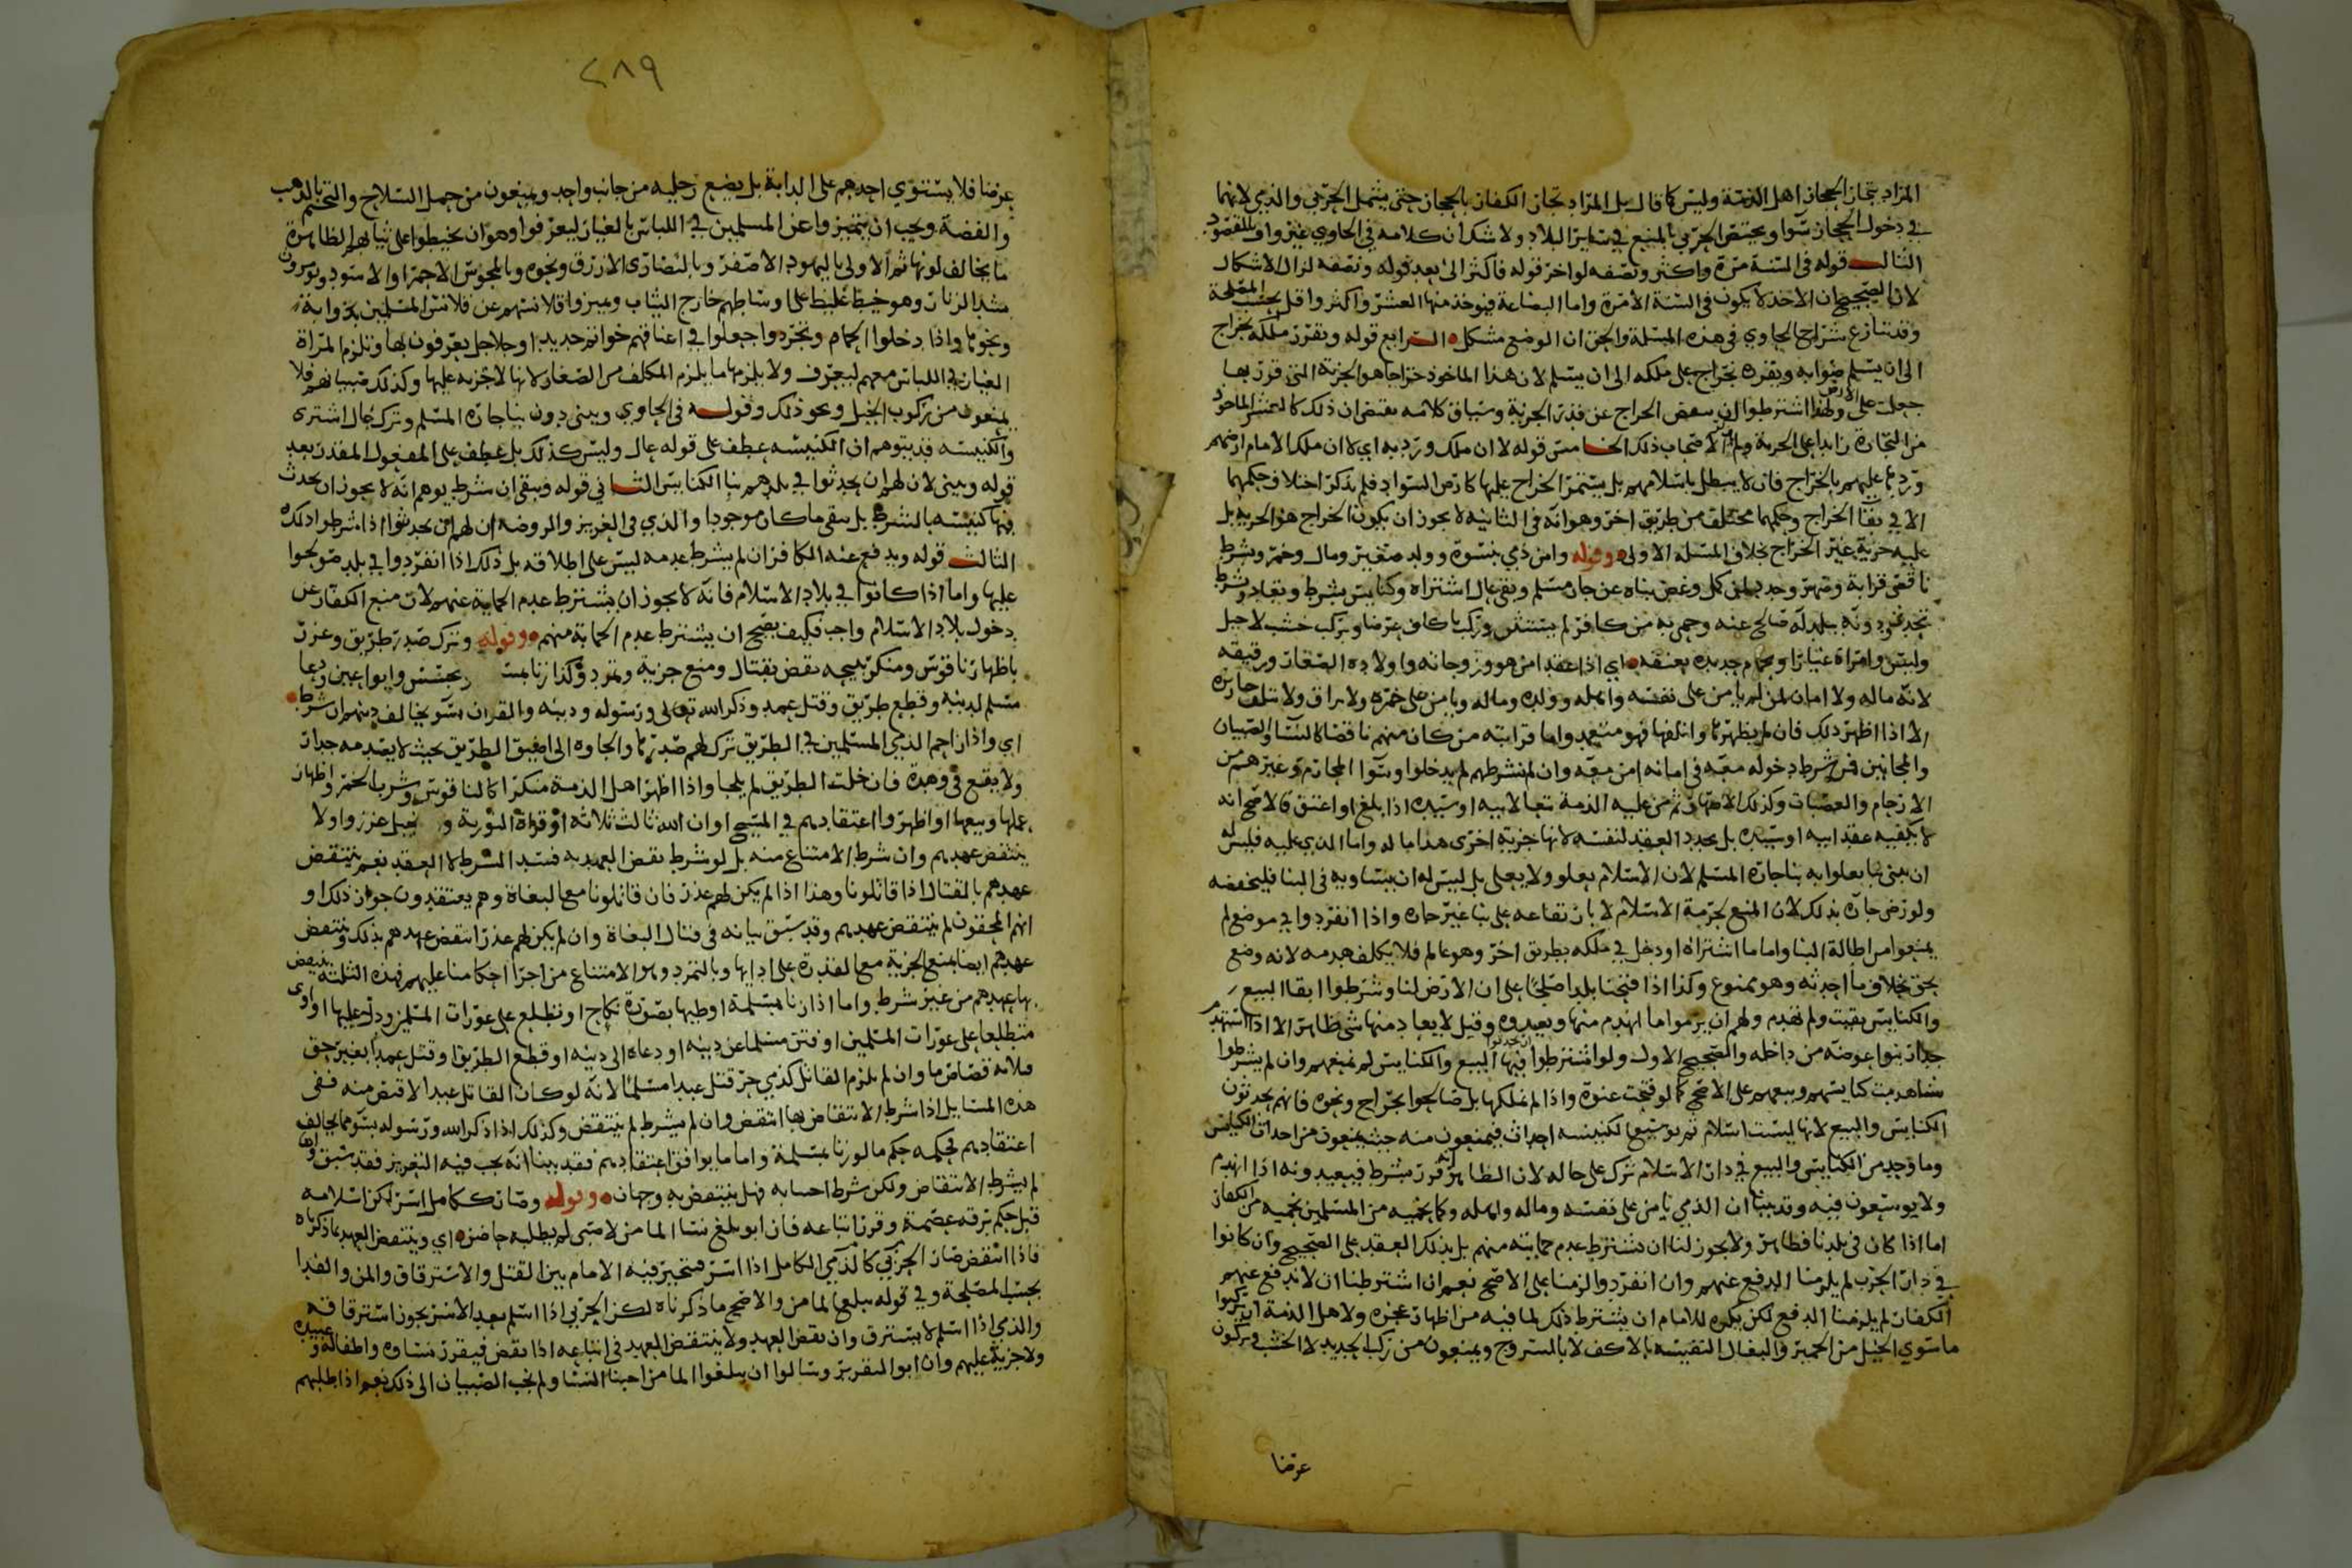 المراد بتجار الحجاز اهل الذمة وليس كما قال بل المراد تجار الكفار بالحجاز حتى يشمل الحربي والذمي لانهما
في دخول الحجاز سوا ويختص الحربي بالمنع في سائر البلاد ولا شك ان كلامه في الحاوي غير واف بالمقصود
الثالث قوله في السنة مرة واكثر ونصفه لو اخر قوله فاكثر الى بعد قوله ونصفه لزال الاشكال
لان الصحيح ان الاخذ لا يكون في السنة الا مرة واما البضاعة فيوخذ منها العشر واكثر واقل بحسب المصلحة
وقد تنازع شراح الحاوي في هذه المسئلة والحق ان الوضع مشكل الرابع قوله وتقرر ملكه بخراج
الى ان يسلم صوابه ويقره بخراج على ملكه الى ان يسلم لان هذا الماخوذ خراجا هو الجزية التي قوربها
جعلت على الارض ولهذا اشترطوا ان ينقص الخراج عن قدر الجزية وسياق كلامه يقتضي ان ذلك كالعشر الماخوذ
من التجارة زايدا على الجزية ولم الاصحاب ذلك الخامس قوله لا ان ملك ورد به اي لا ان ملك الامام ارضهم
ورد بها عليهم بالخراج فانه لا يبطل باسلامهم بل يستمر الخراج عليها كارض السواد فلم يذكر اختلاف حكمهما
الا في بقا الخراج وحكمهما مختلف من طريق اخر وهو انه في الثانية لا يجوز ان يكون الخراج هو الجزية بل
عليه جزية غير الخراج بخلاف المسئلة الاولى وقوله وامن ذمي بنسوة وولد صغير ومال وخمر وبشرط
ناقصي قرابة وصهر وجدد لمن كمل وغض بناه عن جار مسلم وبقي عال اشتراه وكنايس بشرط وتعاد وبشرط
تجدد ودونه ببلد له صالح عنه وحمي به من كافر لم يستثن وركب باكاف عرضا وبركب خشب لا خيل
ولبس وامراة غيارا وبحمام حديده بعنقه اي اذا عقد امن هو وزوجاته واولاده الصغار ورقيقه
لانه ماله ولا امان لمن لم يامن على نفسه واهله وولده وماله ويامن على خمره ولا يراق ولا تتلف خنازيره
الا اذا اظهر ذلك فان لم يظهرها واتلفها فهو متعد واما قرابته من كان منهم ناقصا كالنسا والصبيان
والمجانين فمن شرط دخوله معه في امانه امن معه وان لم نشرطهم لم يدخلوا وسوا المحارم وغيرهم من
الارحام والعصبات وكذلك الاصهار ثم من عليه الذمة تبعا لابيه او سيده اذا بلغ او اعتق فالاصح انه
لا يكفيه عقد ابيه او سيده بل يجدد العقد لنفسه لانها جزية اخرى هذا ما له واما الذي عليه فليس له
ان يبني ما يعلوا به بنا جاره المسلم لان الاسلام يعلو ولا يعلى بل ليس له ان يساويه في البنا فليخفضه
ولو رضي جاره بذلك لان المنع لحرمة الاسلام لا بارتفاعه على بنا غير جاره واذا انفردوا في موضع لم
يمنعوا من اطالة البنا واما ما اشتراه او دخل في ملكه بطريق اخر وهو عال فلا يكلف هدمه لانه وضع
بحق بخلاف ما احدثه وهو ممنوع وكذا اذا فتحنا بلدا صلحا على ان الارض لنا وشرطوا ابقا البيع
والكنايس بقيت ولم تهدم ولهم ان يرموا ما انهدم منها ويعيدوه وقيل لا يعاد منها شي ظاهر الا اذا استهدم
جدار بنوا عوضه من داخله والصحيح الاول ولو اشترطوا ان يحدثوا فيها البيع والكنايس لم نمنعهم وان لم يشرطوا
شيا هدمت كنايسهم وبيعهم على الاصح كما لو فتحت عنوة واذا لم نملكها بل صالحوا بخراج ونحوه فانهم يحدثون
الكنايس والبيع لانها ليست اسلام ثم توسيع الكنيسه احداث فيمنعون منه حيث يمنعون من احداث الكنايس
وما وجد من الكنايس والبيع في دار الاسلام ترك على حاله لان الظاهر انه قرر بشرط فيعيدونه اذا انهدم
ولا يوسعون فيه وقد بينا ان الذمي يامن على نفسه وماله واهله وكما نحميه من المسلمين نحميه من الكفار
اما اذا كان في بلدنا فظاهر ولا يجوز لنا ان نشترط عدم حمايته منهم بل بذلك العقد على الصحيح وان كانوا
في دار الحرب لم يلزمنا الدفع عنهم وان انفردوا لزمنا على الاصح نعم ان اشترطنا ان لا ندفع عنهم
الكفار لم يلزمنا الدفع لكن يكره للامام ان يشترط ذلك لما فيه من اظهار عجزه ولاهل الذمة ان يركبوا
ما سوي الخيل من الحمير والبغال النفيسه بالاكف لا بالسروج ويمنعون من ركب الحديد لا الخشب ويركبون
عرضا
٢٨٩
عرضا فلا يستوي احدهم على الدابة بل يضع رجليه من جانب واحد ويمنعون من حمل السلاح والتختم بالذهب
والفضة ويجب ان يتميزوا عن المسلمين في اللباس بالغيار ليعرفوا وهو ان يخيطوا على ثيابهم الظاهرة
ما يخالف لونها ثم الاولى باليهود الاصفر وبالنصارى الازرق ونحوه وبالمجوس الاحمر او الاسود ويومرون
بشد الزنار وهو خيط غليظ على اوساطهم خارج الثياب ويميزوا قلانسهم عن قلانس المسلمين بذوابة
ونحوها واذا دخلوا الحمام وتجردوا جعلوا في اعناقهم خواتم حديد او جلاجل يعرفون بها وتلزم المراة
الغيار في اللباس معهم ليعرف ولا يلزمها ما يلزم المكلف من الصغار لانها لا جزية عليها وكذلك صبيانهم فلا
يمنعون من ركوب الخيل ونحو ذلك وقوله في الحاوي ويبني دون بنا جاره المسلم وترك عال اشترى
والكنيسه قد يتوهم ان الكنيسه عطف على قوله عال وليس كذلك بل عطف على المفعول المقدر بعد
قوله ويبني لان لهم ان يحدثوا في بلدهم بنا الكنايس الثاني قوله ويبقي ان شرط يوهم انه لا يجوز ان يحدث
فيها كنيسه بالشرط بل يبقي ما كان موجودا والذي في العزيز والروضه ان لهم ان يحدثوا اذا شرطوا ذلك
الثالث قوله ويدفع عنه الكافر ان لم يشرط عدمه ليس على اطلاقه بل ذلك اذا انفردوا في بلد صولحوا
عليها واما اذا كانوا في بلاد الاسلام فانه لا يجوز ان يشترط عدم الحماية عنهم لان منع الكفار عن
دخول بلاد الاسلام واجب فكيف يصح ان يشترط عدم الحماية منهم وقوله وترك صدر طريق وعزر
باظهار ناقوس ومنكر بيعه نقض بقتال ومنع جزية وتمرد وكذا زنا بمسـ بجسس وايوا عين ودعا
مسلم لدينه وقطع طريق وقتل عمد وذكر الله تعالى ورسوله ودينه والقران بسو يخالف دينهم ان شرط
اي واذا زاحم الذمي المسلمين في الطريق ترك لهم صدرها والجاوه الى اضيق الطريق بحيث لا يصدمه جدار
ولا يقع في وهدة فان خلت الطريق لم يلجا واذا اظهر اهل الذمة منكرا كالناقوس وشرب الخمر واظهار
عملها وبيعها او اظهروا اعتقادهم في المسيح او ان الله ثالث ثلاثة او قراة التورية و نجيل عزروا ولا
ينتقض عهدهم وان شرط الامتناع منه بل لو شرط نقض العهد به فسد الشرط لا العقد نعم ينتقض
عهدهم بالقتال اذا قاتلونا وهذا اذا لم يكن لهم عذر فان قاتلونا مع البغاة وهم يعتقدون جواز ذلك او
انهم المحقون لم ينتقض عهدهم وقد سبق بيانه في قتال البغاة وان لم يكن لهم عذر انتقض عهدهم بذلك وينتقض
عهدهم ايضا بمنع الجزية مع القدرة على ادايها وبالتمرد وهو الامتناع من اجرا احكامنا عليهم فهذه الثلثة ينتقض
بها عهدهم من غير شرط واما اذا زنا بمسلمة او وطيها بصورة نكاح او تطلع على عورات المسلمين ودل عليها او اوى
متطلعا على عورات المسلمين او فتن مسلما عن دينه او دعاه الى دينه او قطع الطريق او قتل عمدا بغير حق
فلانه قصاص ما وان لم يلزم القاتل كذمي حر قتل عبدا مسلما لانه لو كان القاتل عبدا لاقتص منه ففي
هذه المسايل اذا شرط الانتقاض بها انتقض وان لم يشرط لم ينتقض وكذلك اذا ذكر الله ورسوله بسو مما يخالف
اعتقادهم فحكمه حكم ما لو زنا بمسلمة واما ما يوافق اعتقادهم فقد بينا انه يجب فيه التعزير فقد سبق واما
لم يشرط الانتقاض ولكن شرط اجتنابه فهل ينتقض به وجهان وقوله وصار ككامل اسر لكن اسلامه
قبل حكم يرقه عصمة وقرر اتباعه فان ابو بلغ نسا المامن لا صبي لم يطلبه حاضنه اي وينتقض العهد بما ذكرناه
فاذا انتقض صار الحربي كالذمي الكامل اذا اسر فتخير فيه الامام بين القتل والاسترقاق والمن والفدا
بحسب المصلحة وفي قوله يبلغها المامن والاصح ما ذكرناه لكن الحربي اذا اسلم بعد الاسر يجوز استرقاقه
والذمي اذا اسلم لا يسترق وان نقض العهد ولا ينتقض العهد في اتباعه اذا نقض فيقرر نساوه واطفاله وعبيده
ولا جزية عليهم وان ابوا التقرير وسالوا ان يبلغوا المامن اجبنا النسا ولم نجب الصبيان الى ذلك نعم اذا طلبهم